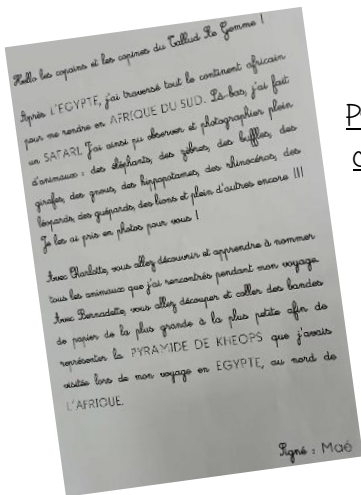 Hello les copains et les copines du Tallud Ste Gemme !
Après L'EGYPTE, j'ai traversé tout le continent africain
pour me rendre en AFRIQUE DU SUD. Là-bas, j'ai fait
un SAFARI. J'ai ainsi pu observer et photographier plein
d'animaux : des éléphants, des zèbres, des buffles, des
girafes, des gnous, des hippopotames, des rhinocéros, des
léopards, des guépards, des lions et plein d'autres encore !!!
Je les ai pris en photos pour vous !
Avec Charlotte, vous allez découvrir et apprendre à nommer
tous les animaux que j'ai rencontrés pendant mon voyage.
Avec Bernadette, vous allez découper et coller des bandes
de papier de la plus grande à la plus petite afin de
représenter la PYRAMIDE DE KHEOPS que j'avais
visitée lors de mon voyage en EGYPTE, au nord de
L'AFRIQUE.
Signé : Maé